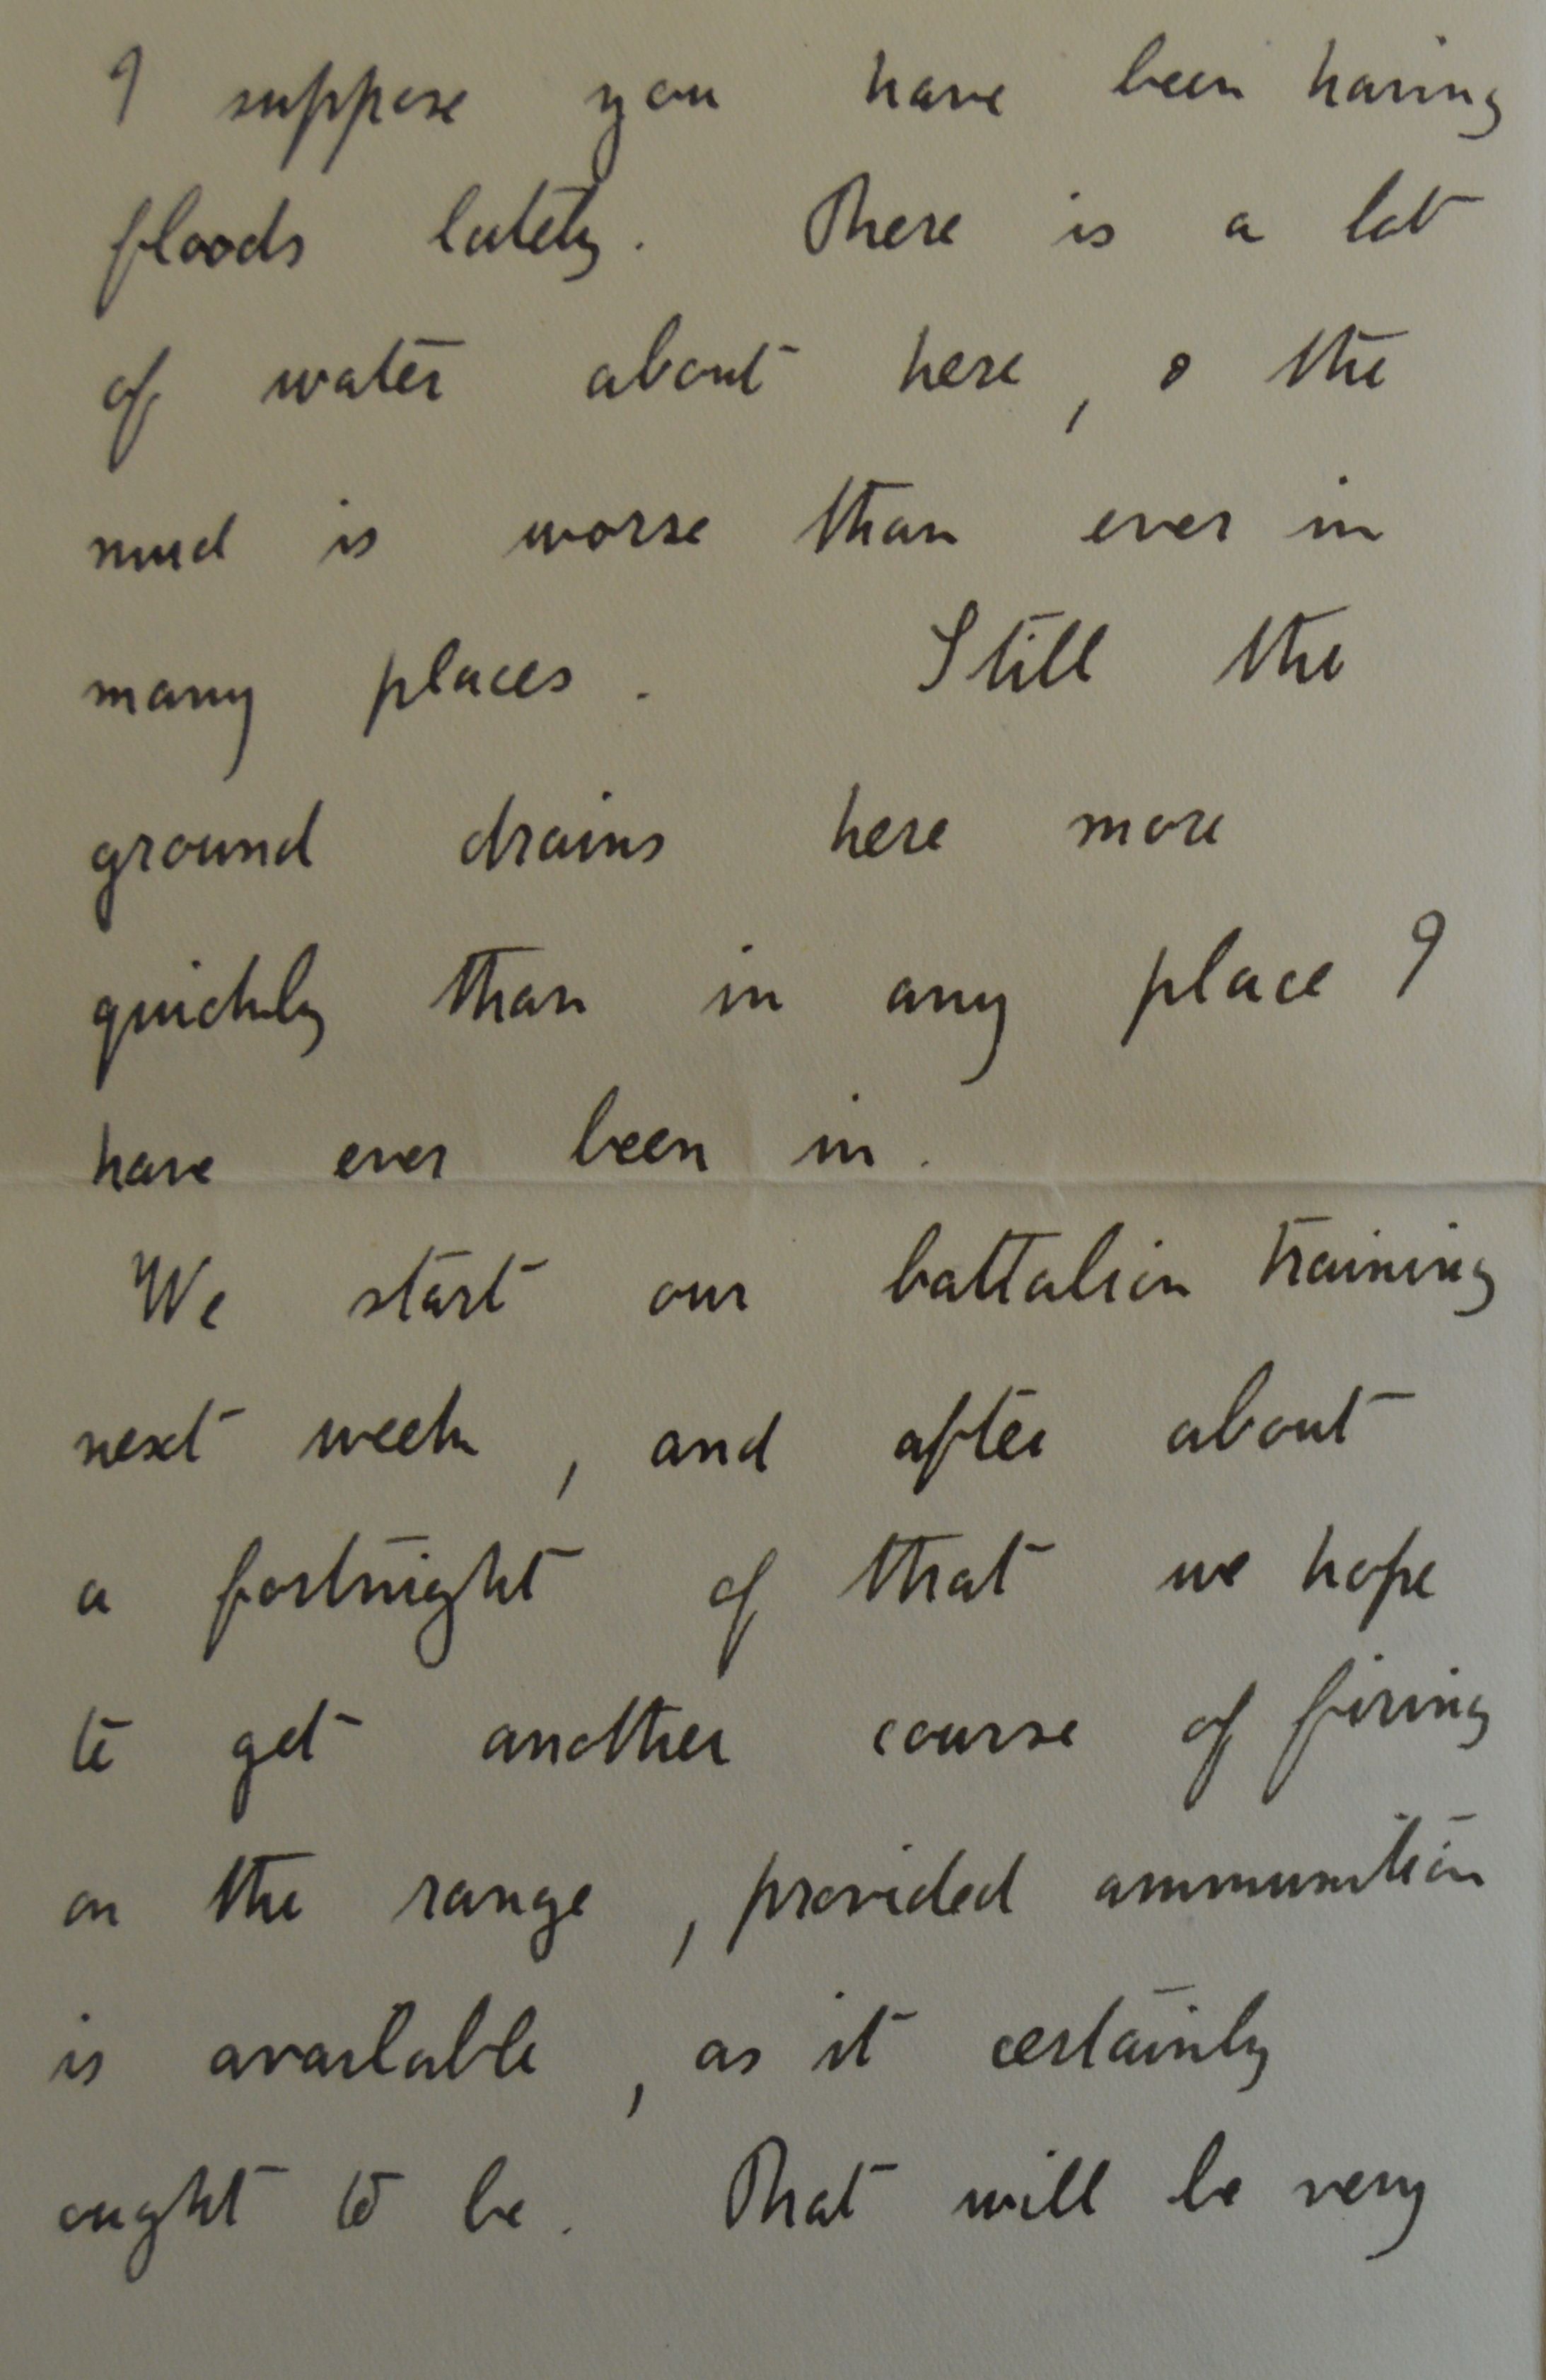 I suppose you have been having
floods lately. There is a lot
of water about here, & the
mud is worse than ever in
many places. Still the
ground drains here more
quickly than in any place I
have ever been in.
We start our battalion training
next week, and after about
a fortnight of that we hope
to get another course of firing
on the range, provided ammunition
is available, as it certainly
ought to be. That will be very